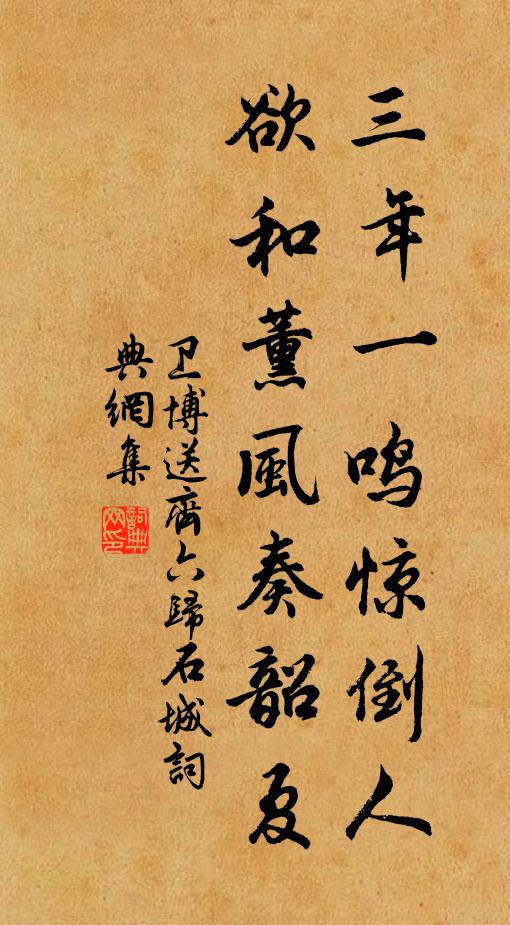 三年一鸣惊倒人
欲和薰風奏韶夏
卫博送齊六歸石城詞
典網集
詞典網印